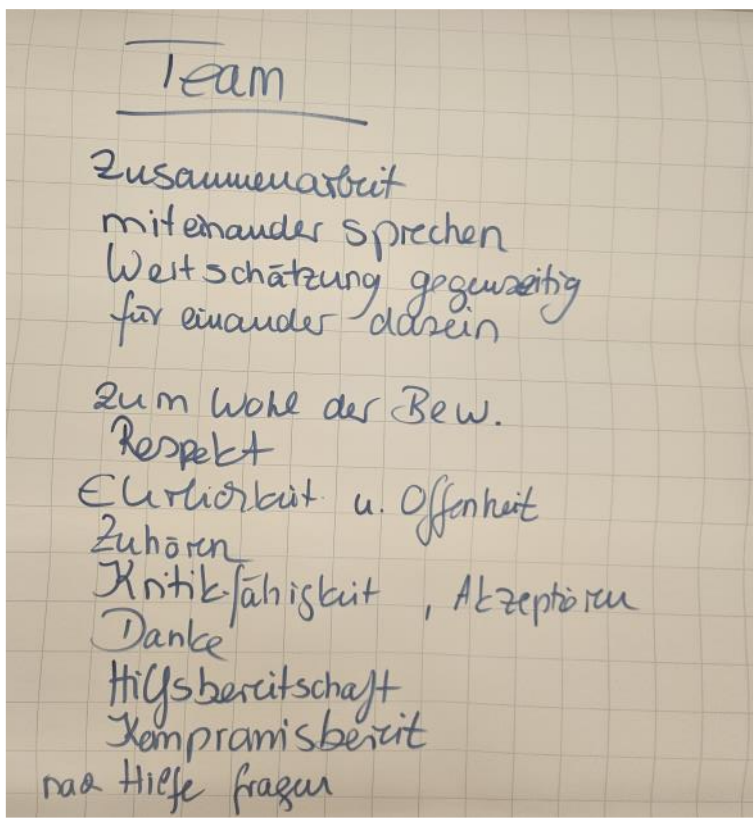 Team
Zusammenarbeit
miteinander sprechen
Wertschätzung gegenseitig
für einander dasein
zum Wohl der Bew.
Respekt
Ehrlichkeit u. Offenheit
Zuhören
Kritikfähigkeit, Akzeptieren
Danke
Hilfsbereitschaft
Kompromisbereit
nach Hilfe fragen